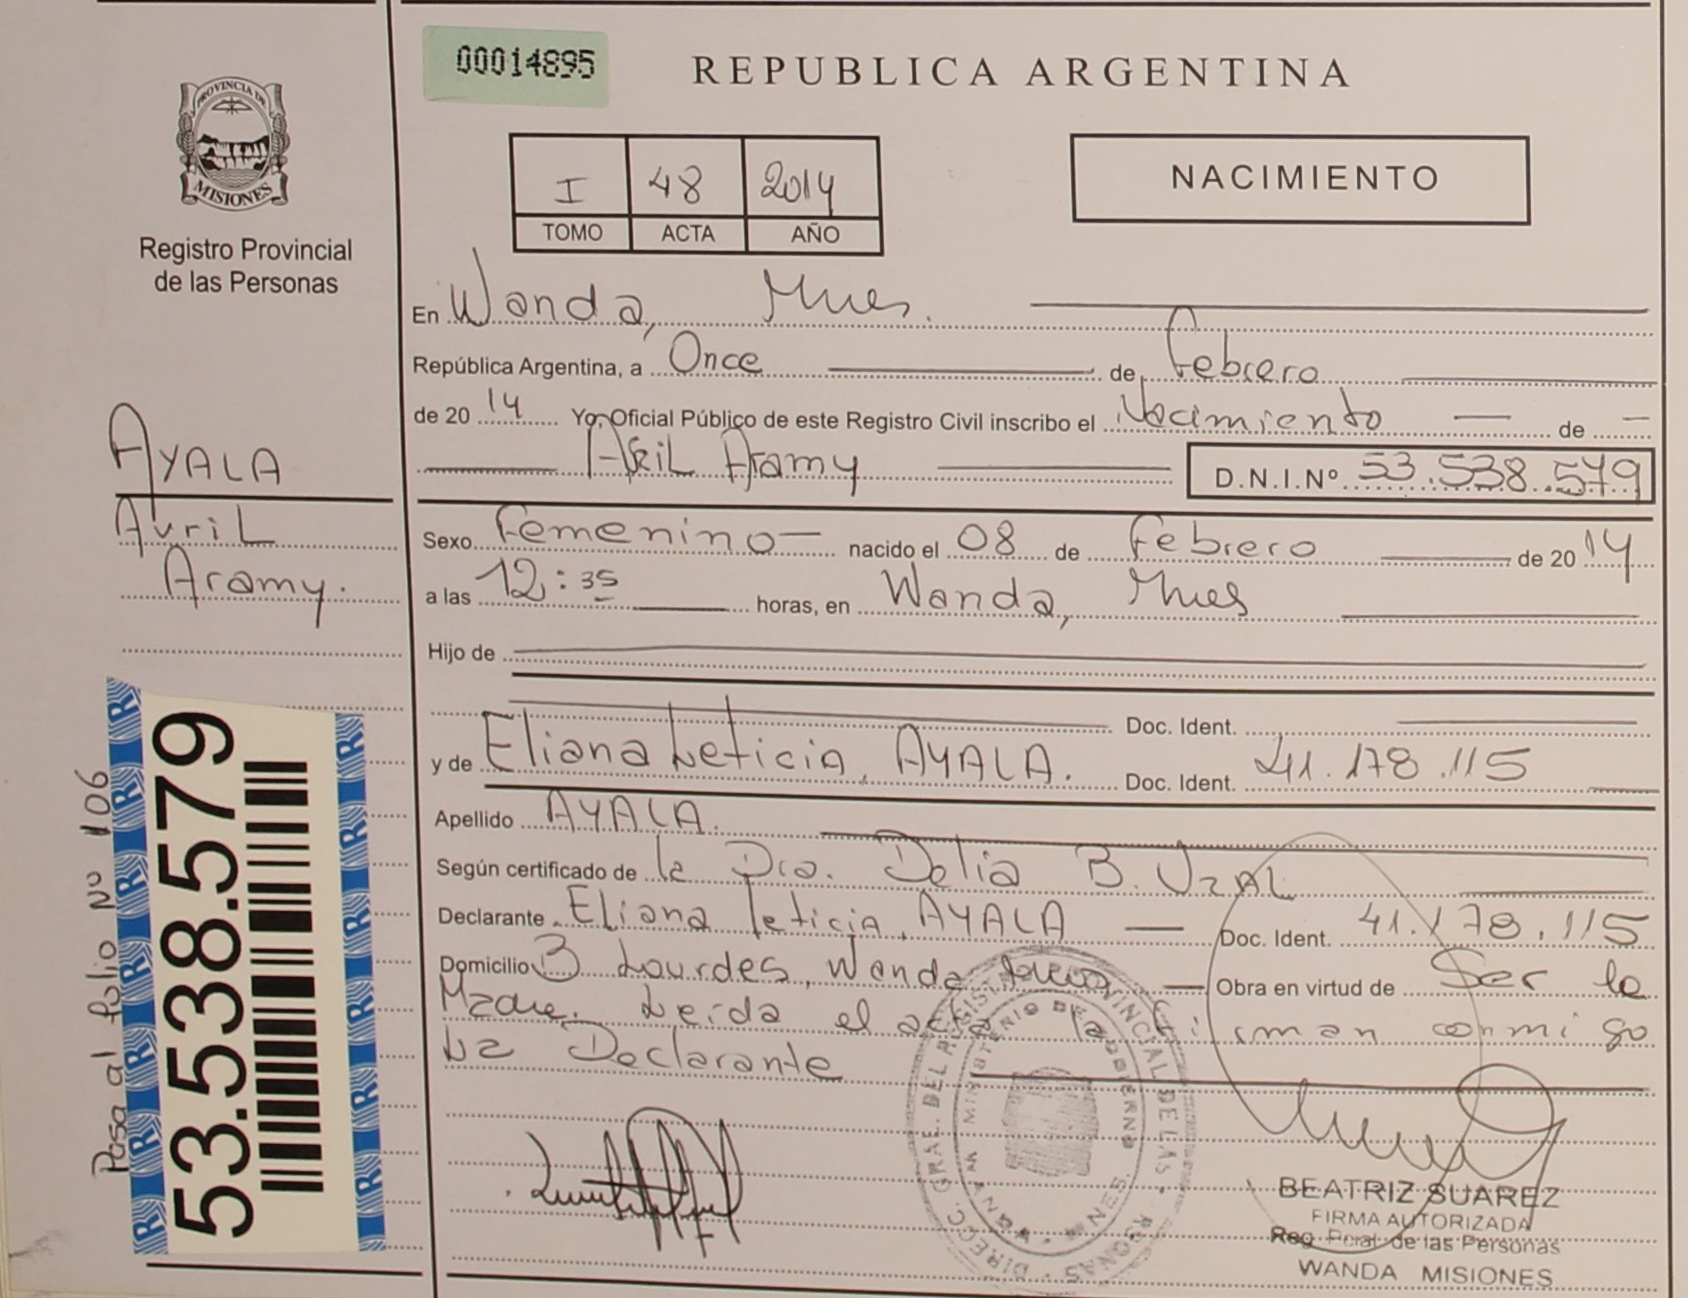 00014895
REPUBLICA ARGENTINA
PROVINCIA DE
MISIONES
Registro Provincial
de las Personas
I 48 2014
TOMO ACTA AÑO
NACIMIENTO
En Wanda, Mnes.
República Argentina, a Once de Febrero
de 20 14 Yo, Oficial Público de este Registro Civil inscribo el Nacimiento de
Aramy D.N.I.Nº 53.538.579
AYALA
Avril
Aramy.
Sexo Femenino nacido el 08 de Febrero de 20 14
a las 12:35 horas, en Wanda, Mnes
Hijo de
Doc. Ident.
y de Eliana Leticia, AYALA. Doc. Ident. 41.178.115
Apellido AYALA.
Según certificado de la Dra. Delia B. Uzal
Declarante Eliana Leticia, AYALA Doc. Ident. 41.178.115
Domicilio B Lourdes, Wanda Obra en virtud de Ser la
Madre. Leida el acta la firman conmigo
La Declarante
Pasa al folio Nº 106
53.538.579
DIRECC. GRAL. DEL REGISTRO PROVINCIAL DE LAS PERSONAS
MINISTERIO DE GOBIERNO
BEATRIZ SUAREZ
FIRMA AUTORIZADA
Reg. Pcial. de las Personas
WANDA MISIONES